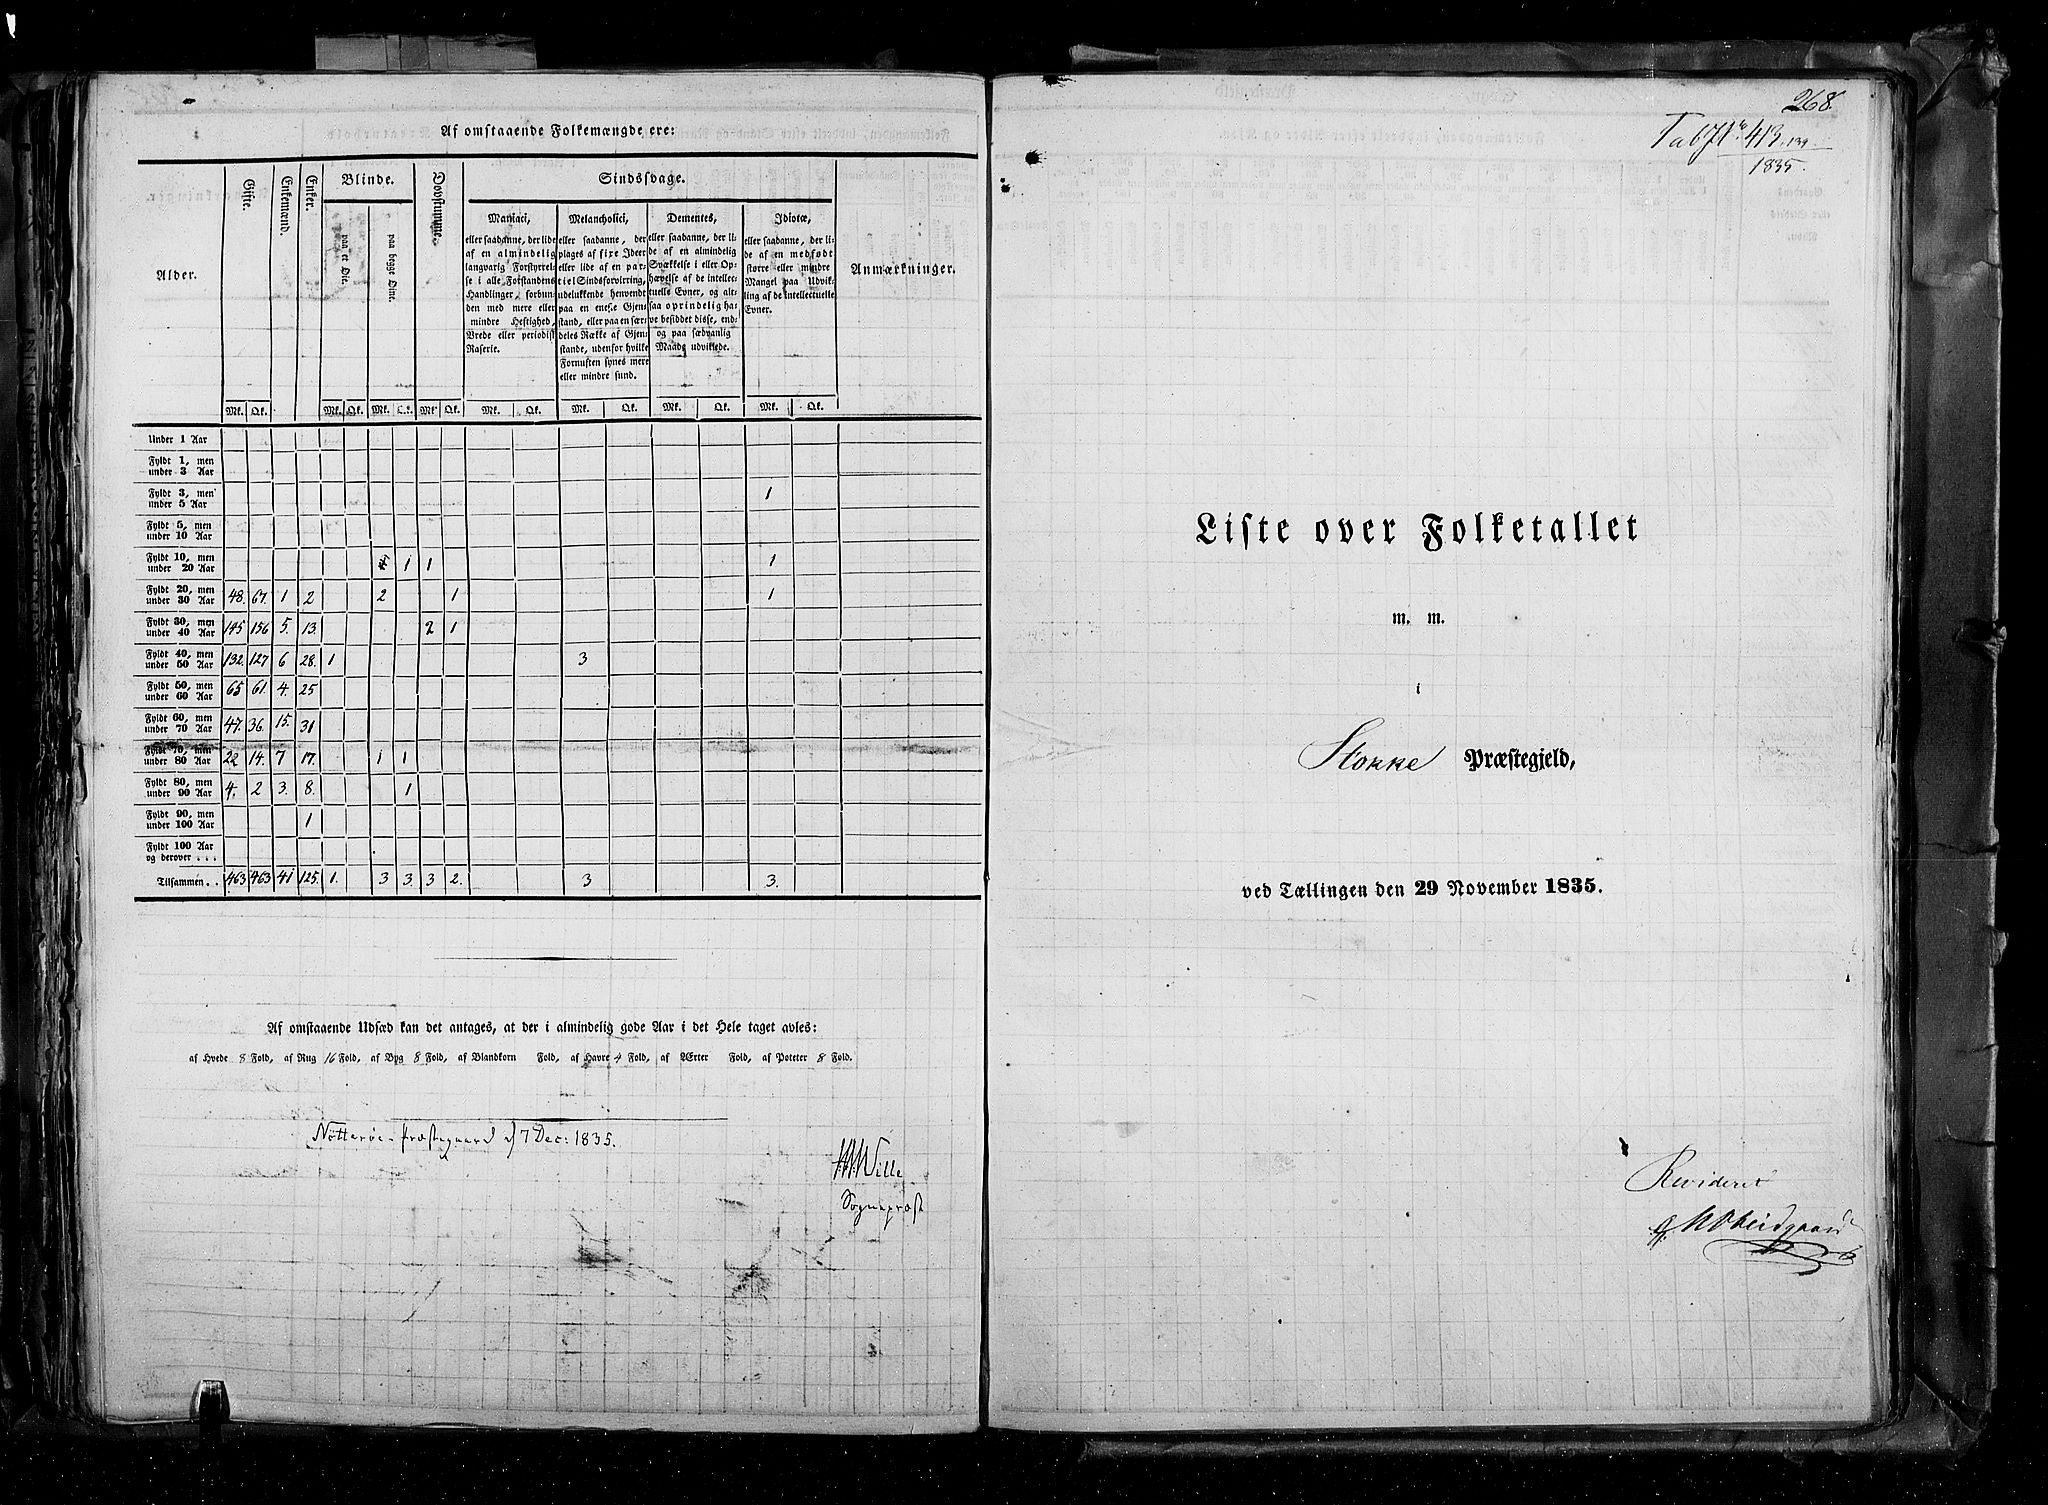 Af omstaaende Folkemængde ere:
Alder.
Gifte.
Enkemænd.
Enker.
Blinde.
paa et Øie.
paa begge Øine.
Døvstumme.
Sindssvage.
Maniaci,
eller saadanne, der lide
af en almindelig
langvarig Forstyrrel-
se i alle Forstandens
Handlinger, forbun-
den med mere eller
mindre Heftighed,
Vrede eller periodisk
Raserie.
Melancholici,
eller saadanne, der
plages af fixe Ideer
eller lide af en par-
tiel Sindsforvirring,
udelukkende henvendt
paa en enkelt Gjen-
stand, eller paa en sær-
deles Række af Gjen-
stande, udenfor hvilke
Fornuften synes mere
eller mindre sund.
Dementes,
eller saadanne, der li-
de af en almindelig
Svækkelse i eller Op-
hævelse af de intellec-
tuelle Evner, og alt-
saa oprindelig ha-
ve besiddet disse, end-
og paa sædvanlig
Maade udviklede.
Idiotæ,
eller saadanne, der li-
de af en medfødt
større eller mindre
Mangel paa Udvik-
ling af de intellectuelle
Evner.
Anmærkninger.
Mk. Qk. Mk. Qk. Mk. Qk. Mk. Qk. Mk. Qk. Mk. Qk. Mk. Qk. Mk. Qk.
Under 1 Aar
Fyldt 1, men
under 3 Aar
Fyldt 3, men
under 5 Aar 1
Fyldt 5, men
under 10 Aar
Fyldt 10, men
under 20 Aar 1 1 1
Fyldt 20, men
under 30 Aar 48. 67. 1 2 2 1 1
Fyldt 30, men
under 40 Aar 145 156 5. 13. 2 1
Fyldt 40, men
under 50 Aar 132. 127 6 28. 1 3
Fyldt 50, men
under 60 Aar 65 61. 4. 25
Fyldt 60, men
under 70 Aar 47. 36. 15. 31
Fyldt 70, men
under 80 Aar 22 14. 7 17. 1 1
Fyldt 80, men
under 90 Aar 4. 2 3. 8. 1
Fyldt 90, men
under 100 Aar 1
Fyldt 100 Aar
og derover . . .
Tilsammen . . 463 463 41 125. 1. 3 3. 3 2. 3 3.
Af omstaaende Udsæd kan det antages, at der i almindelig gode Aar i det Hele taget avles:
af Hvede 8 Fold, af Rug 16 Fold, af Byg 8 Fold, af Blandkorn Fold, af Havre 4 Fold, af Ærter Fold, af Poteter 8 Fold.
Nøtterøe Præstegaard d 7 Dec: 1835.
Wille
Sognepræst
268.
413.
1835.
Liste over Folketallet
m. m.
i
Stokke Præstegjeld,
ved Tællingen den 29 November 1835.
Revideret